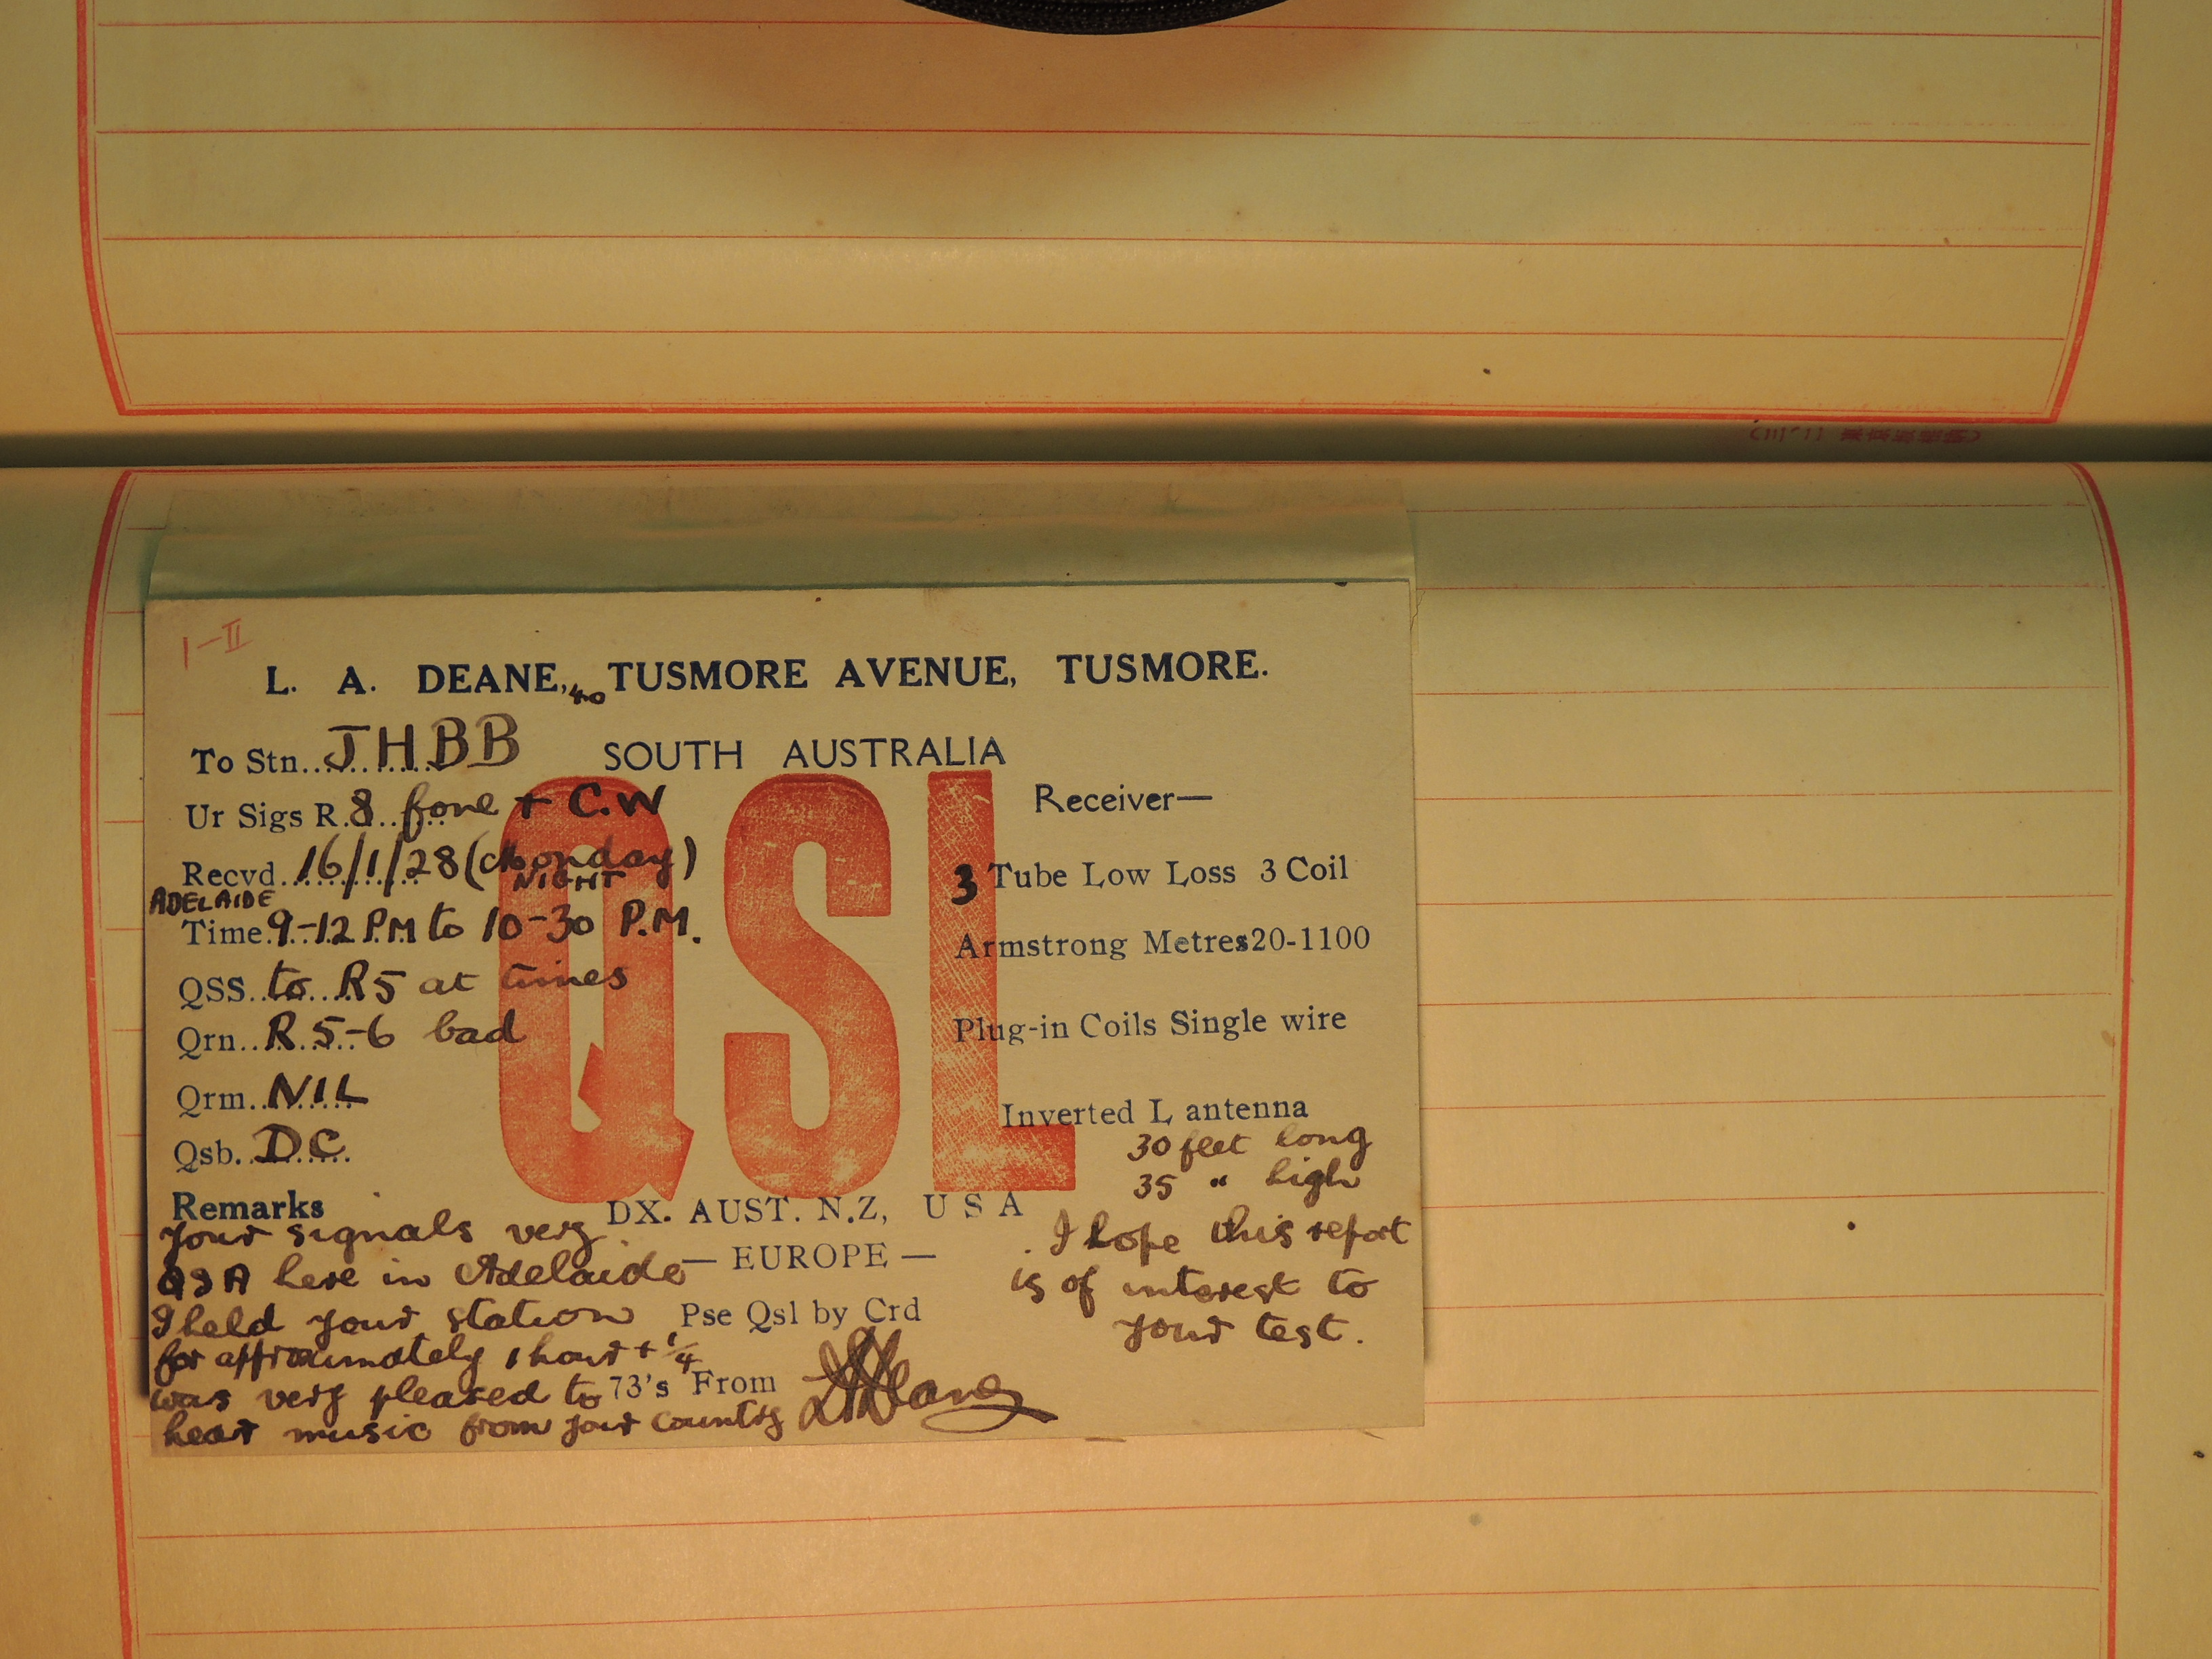 1-II
L. A. DEANE, 40 TUSMORE AVENUE, TUSMORE.
To Stn. JHBB
SOUTH AUSTRALIA
Ur Sigs R. 8 fone + C.W
Recvd. 16/1/28 (Monday)
NIGHT
ADELAIDE
Time. 9-12 PM to 10-30 P.M.
QSS. to R5 at times
Qrn. R 5-6 bad
Qrm. NIL
Qsb. DC
QSL
Receiver—
3 Tube Low Loss 3 Coil
Armstrong Metres 20-1100
Plug-in Coils Single wire
Inverted L antenna
30 feet long
35 " high
Remarks
your signals very
QSA here in Adelaide
I held your station
for approximately 1 hour + 1/4
was very pleased to
hear music from your country
DX. AUST. N.Z, U S A
— EUROPE —
Pse Qsl by Crd
73's From
I hope this report
is of interest to
your test.